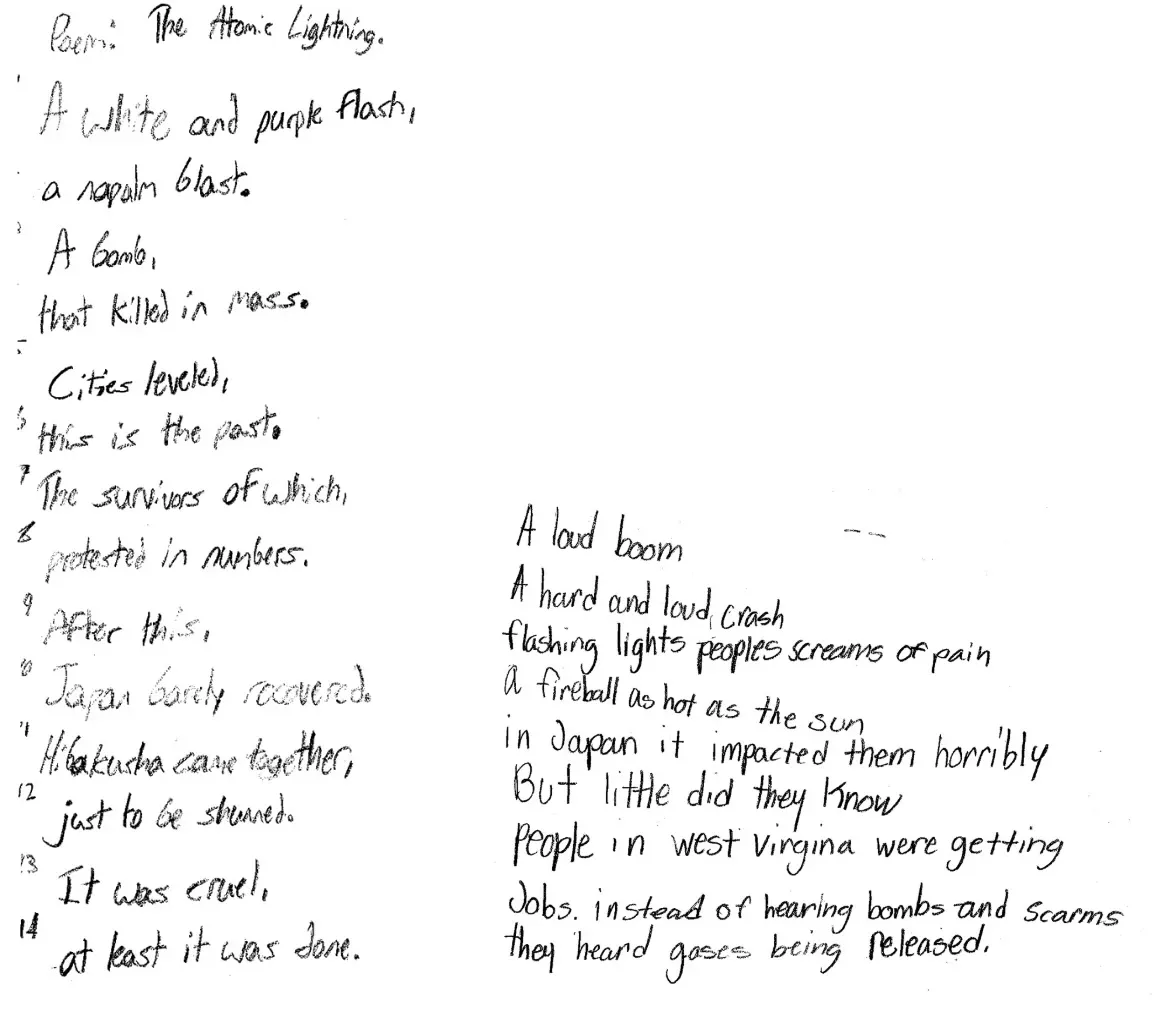 Poem: The Atomic Lightning.
A white and purple flash,
a napalm blast.
3 A bomb,
that killed in mass.
5 Cities leveled,
6 this is the past.
7 The survivors of which,
8 protested in numbers.
9 After this,
10 Japan barely recovered.
11 Hibakusha came together,
12 just to be shunned.
13 It was cruel,
14 at least it was done.
A loud boom
A hard and loud, crash
flashing lights peoples screams of pain
a fireball as hot as the sun
in Japan it impacted them horribly
But little did they know
people in west virgina were getting
Jobs. instead of hearing bombs and scarms
they heard gases being released.